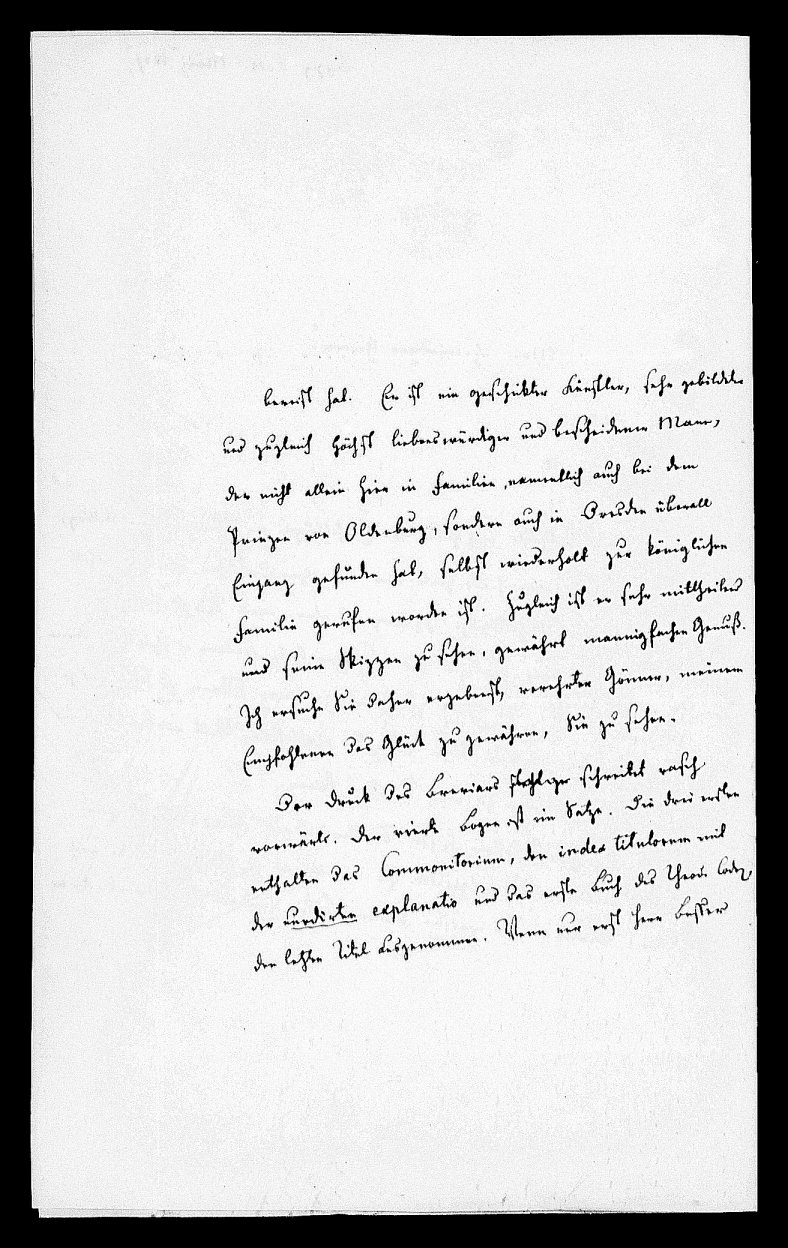 bereist hat. Er ist ein geschickter Künstler, sehr gebildeter
und zugleich höchst liebenswürdiger und bescheidener Mann,
der nicht allein hier in Familien, namentlich auch bei dem
Prinzen von Oldenburg, sondern auch in Dresden überall
Eingang gefunden hat, selbst wiederholt zur königlichen
Familie gerufen worden ist. Zugleich ist er sehr mittheilend
und seine Skizzen zu sehen, gewährt mannigfachen Genuß.
Ich ersuche Sie daher ergebenst, verehrter Gönner, meinem
Empfohlenen das Glück zu gewähren, Sie zu sehen.
Der Druck des Breviars schreitet rasch
vorwärts. Der vierte Bogen ist im Satze. Die drei ersten
enthalten das Commonitorium, den index titulorum mit
der explanatio und das erste Buch des Theod. Codex,
den letzten Titel ausgenommen. Wenn nur erst Herr Besser